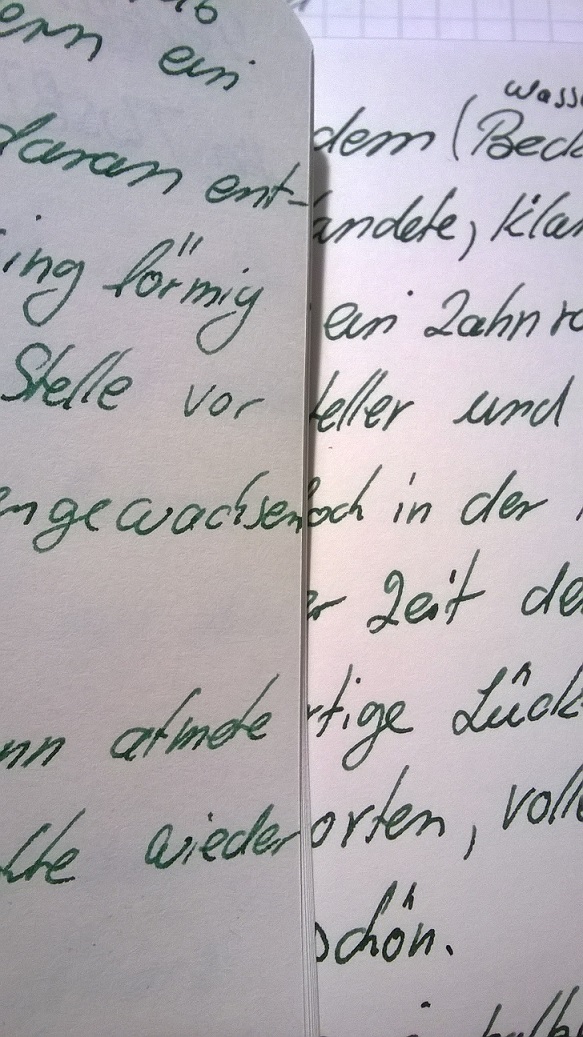 ein
daran ent-
förmig
Stelle vor
gewachsen
atmete
wieder
Wass
dem (Beck
ändete, klar
ein Zahnra
teller und
och in der
er Zeit de
rtige Lück-
orten, volle
schön.